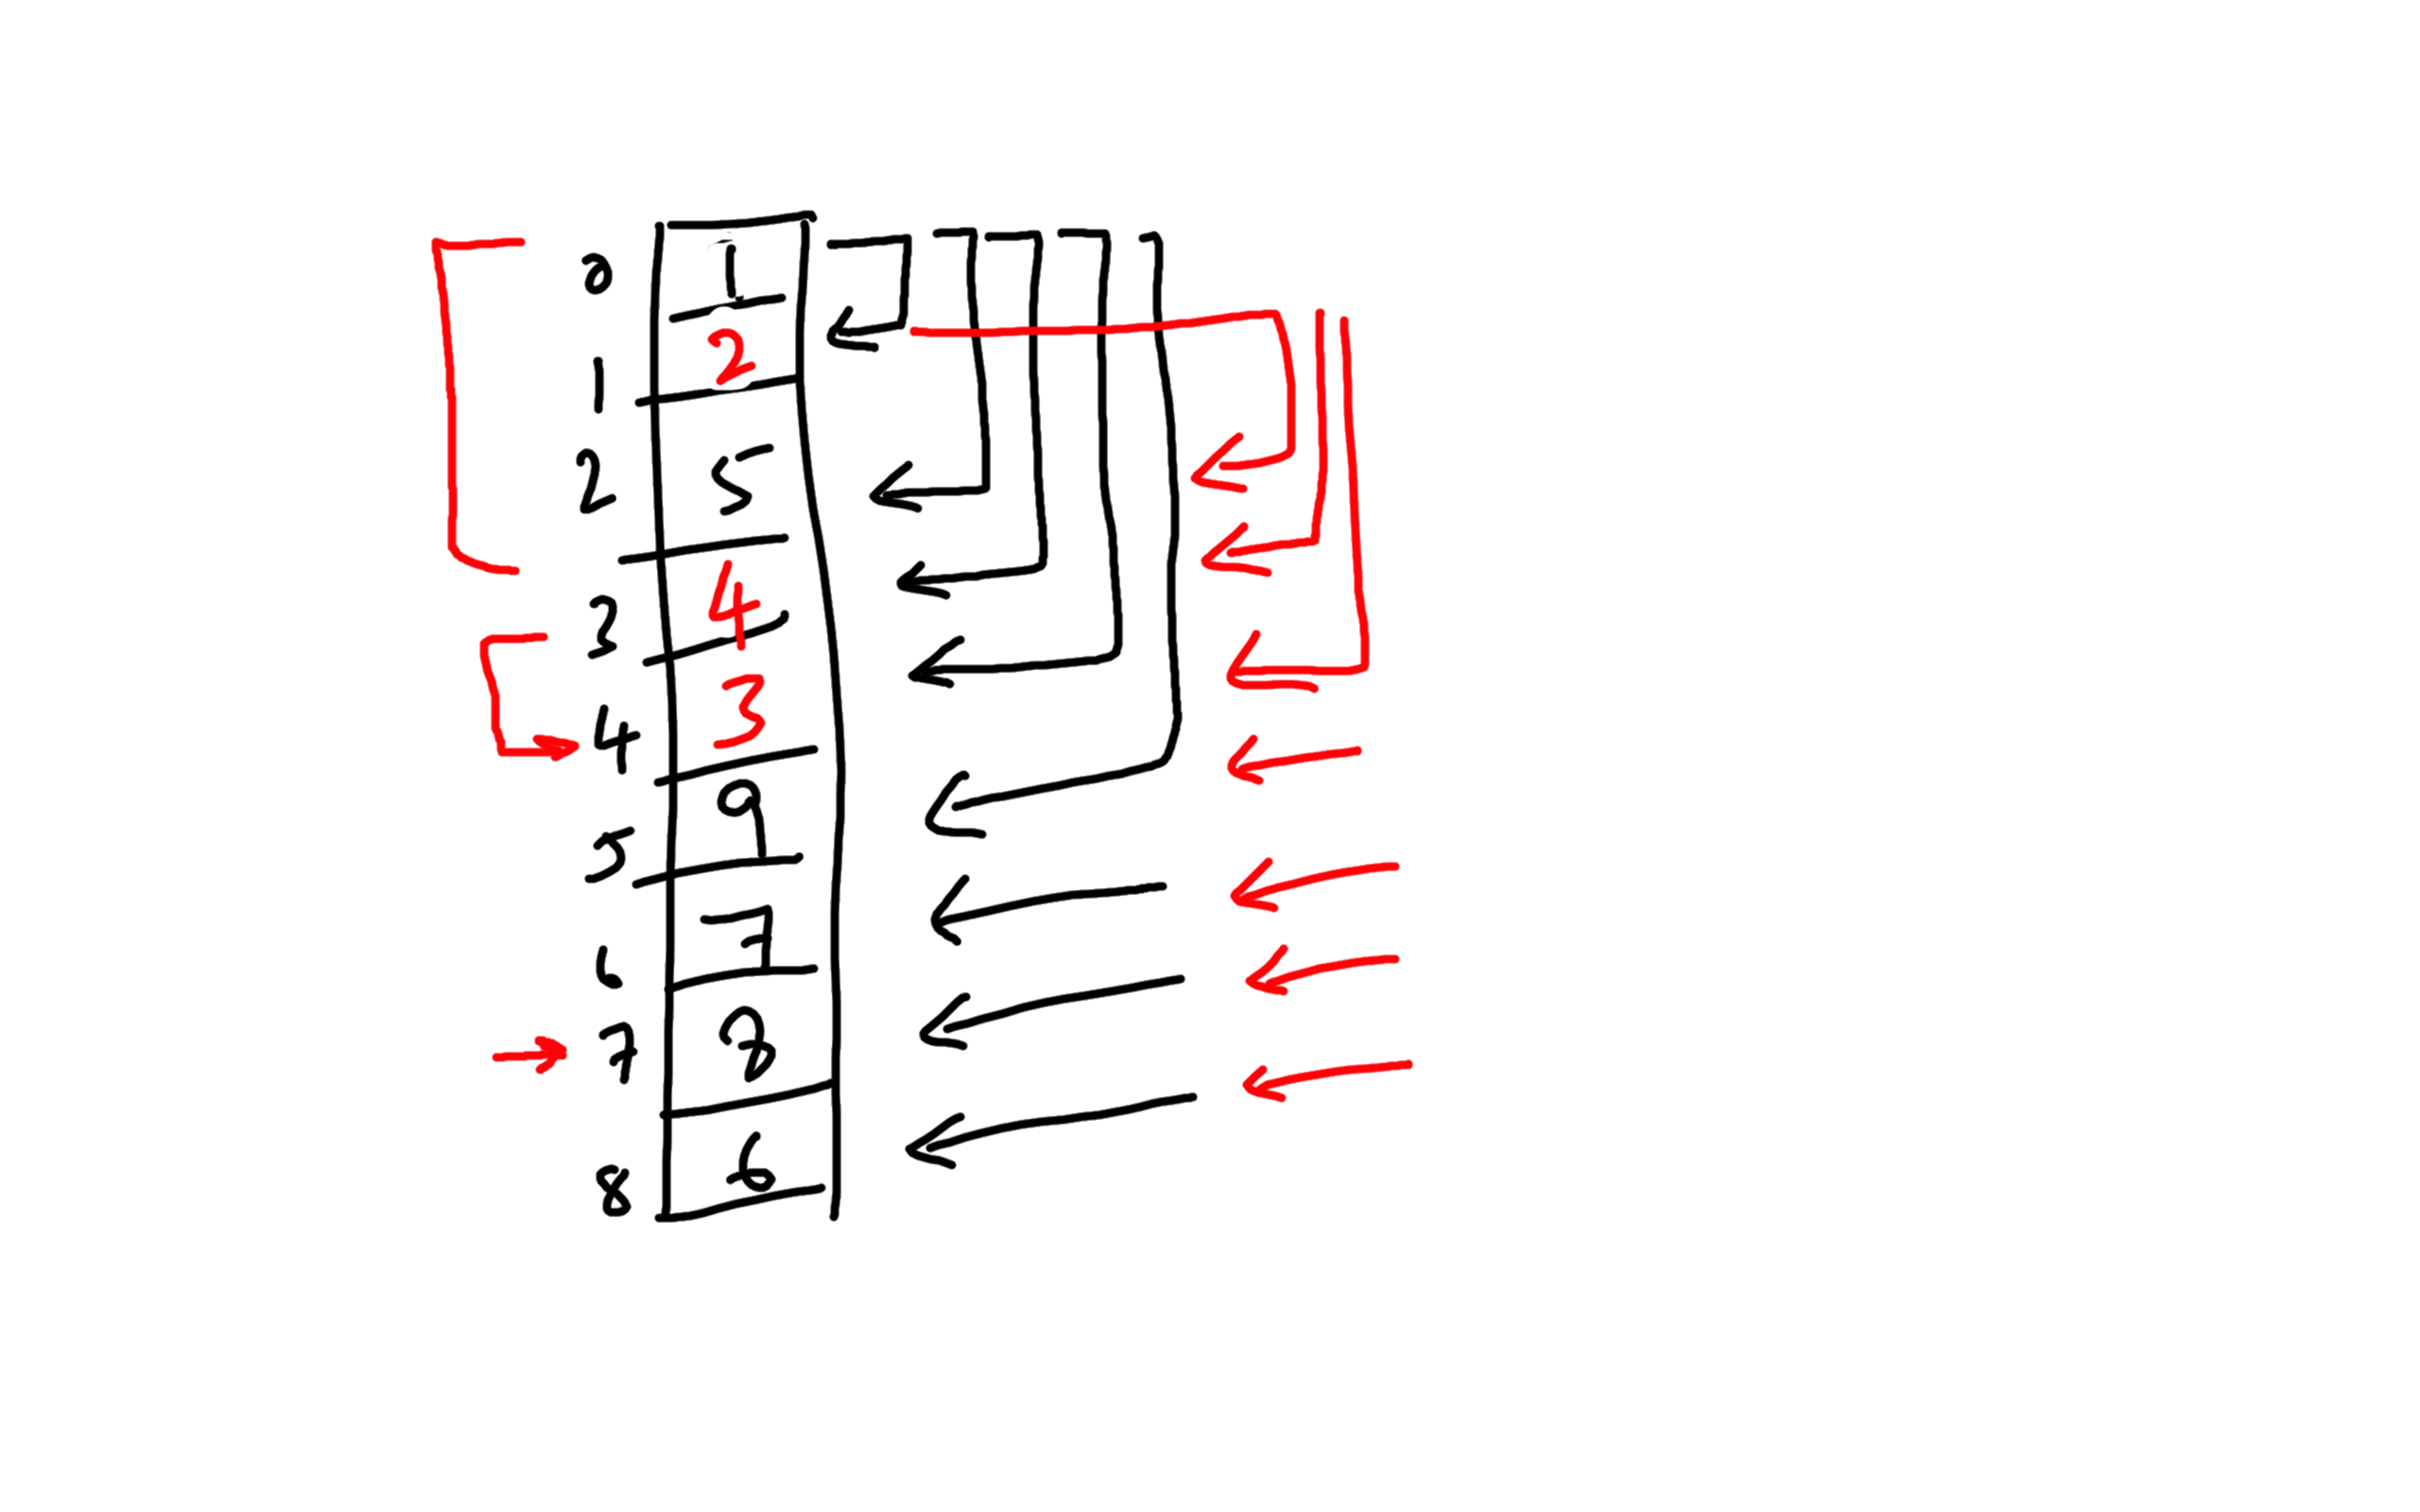 0 1
1 2
2 5
3 4
4 3
5 9
6 7
7 8
8 6